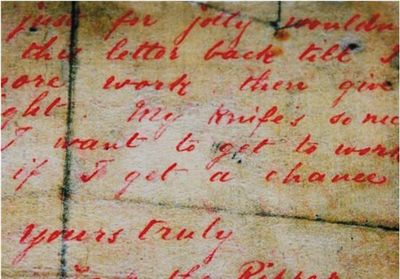 just for jolly wouldn
this letter back till I
more work then give
ght. My knife's so nic
I want to get to work
if I get a chance
Yours truly
the Ripper